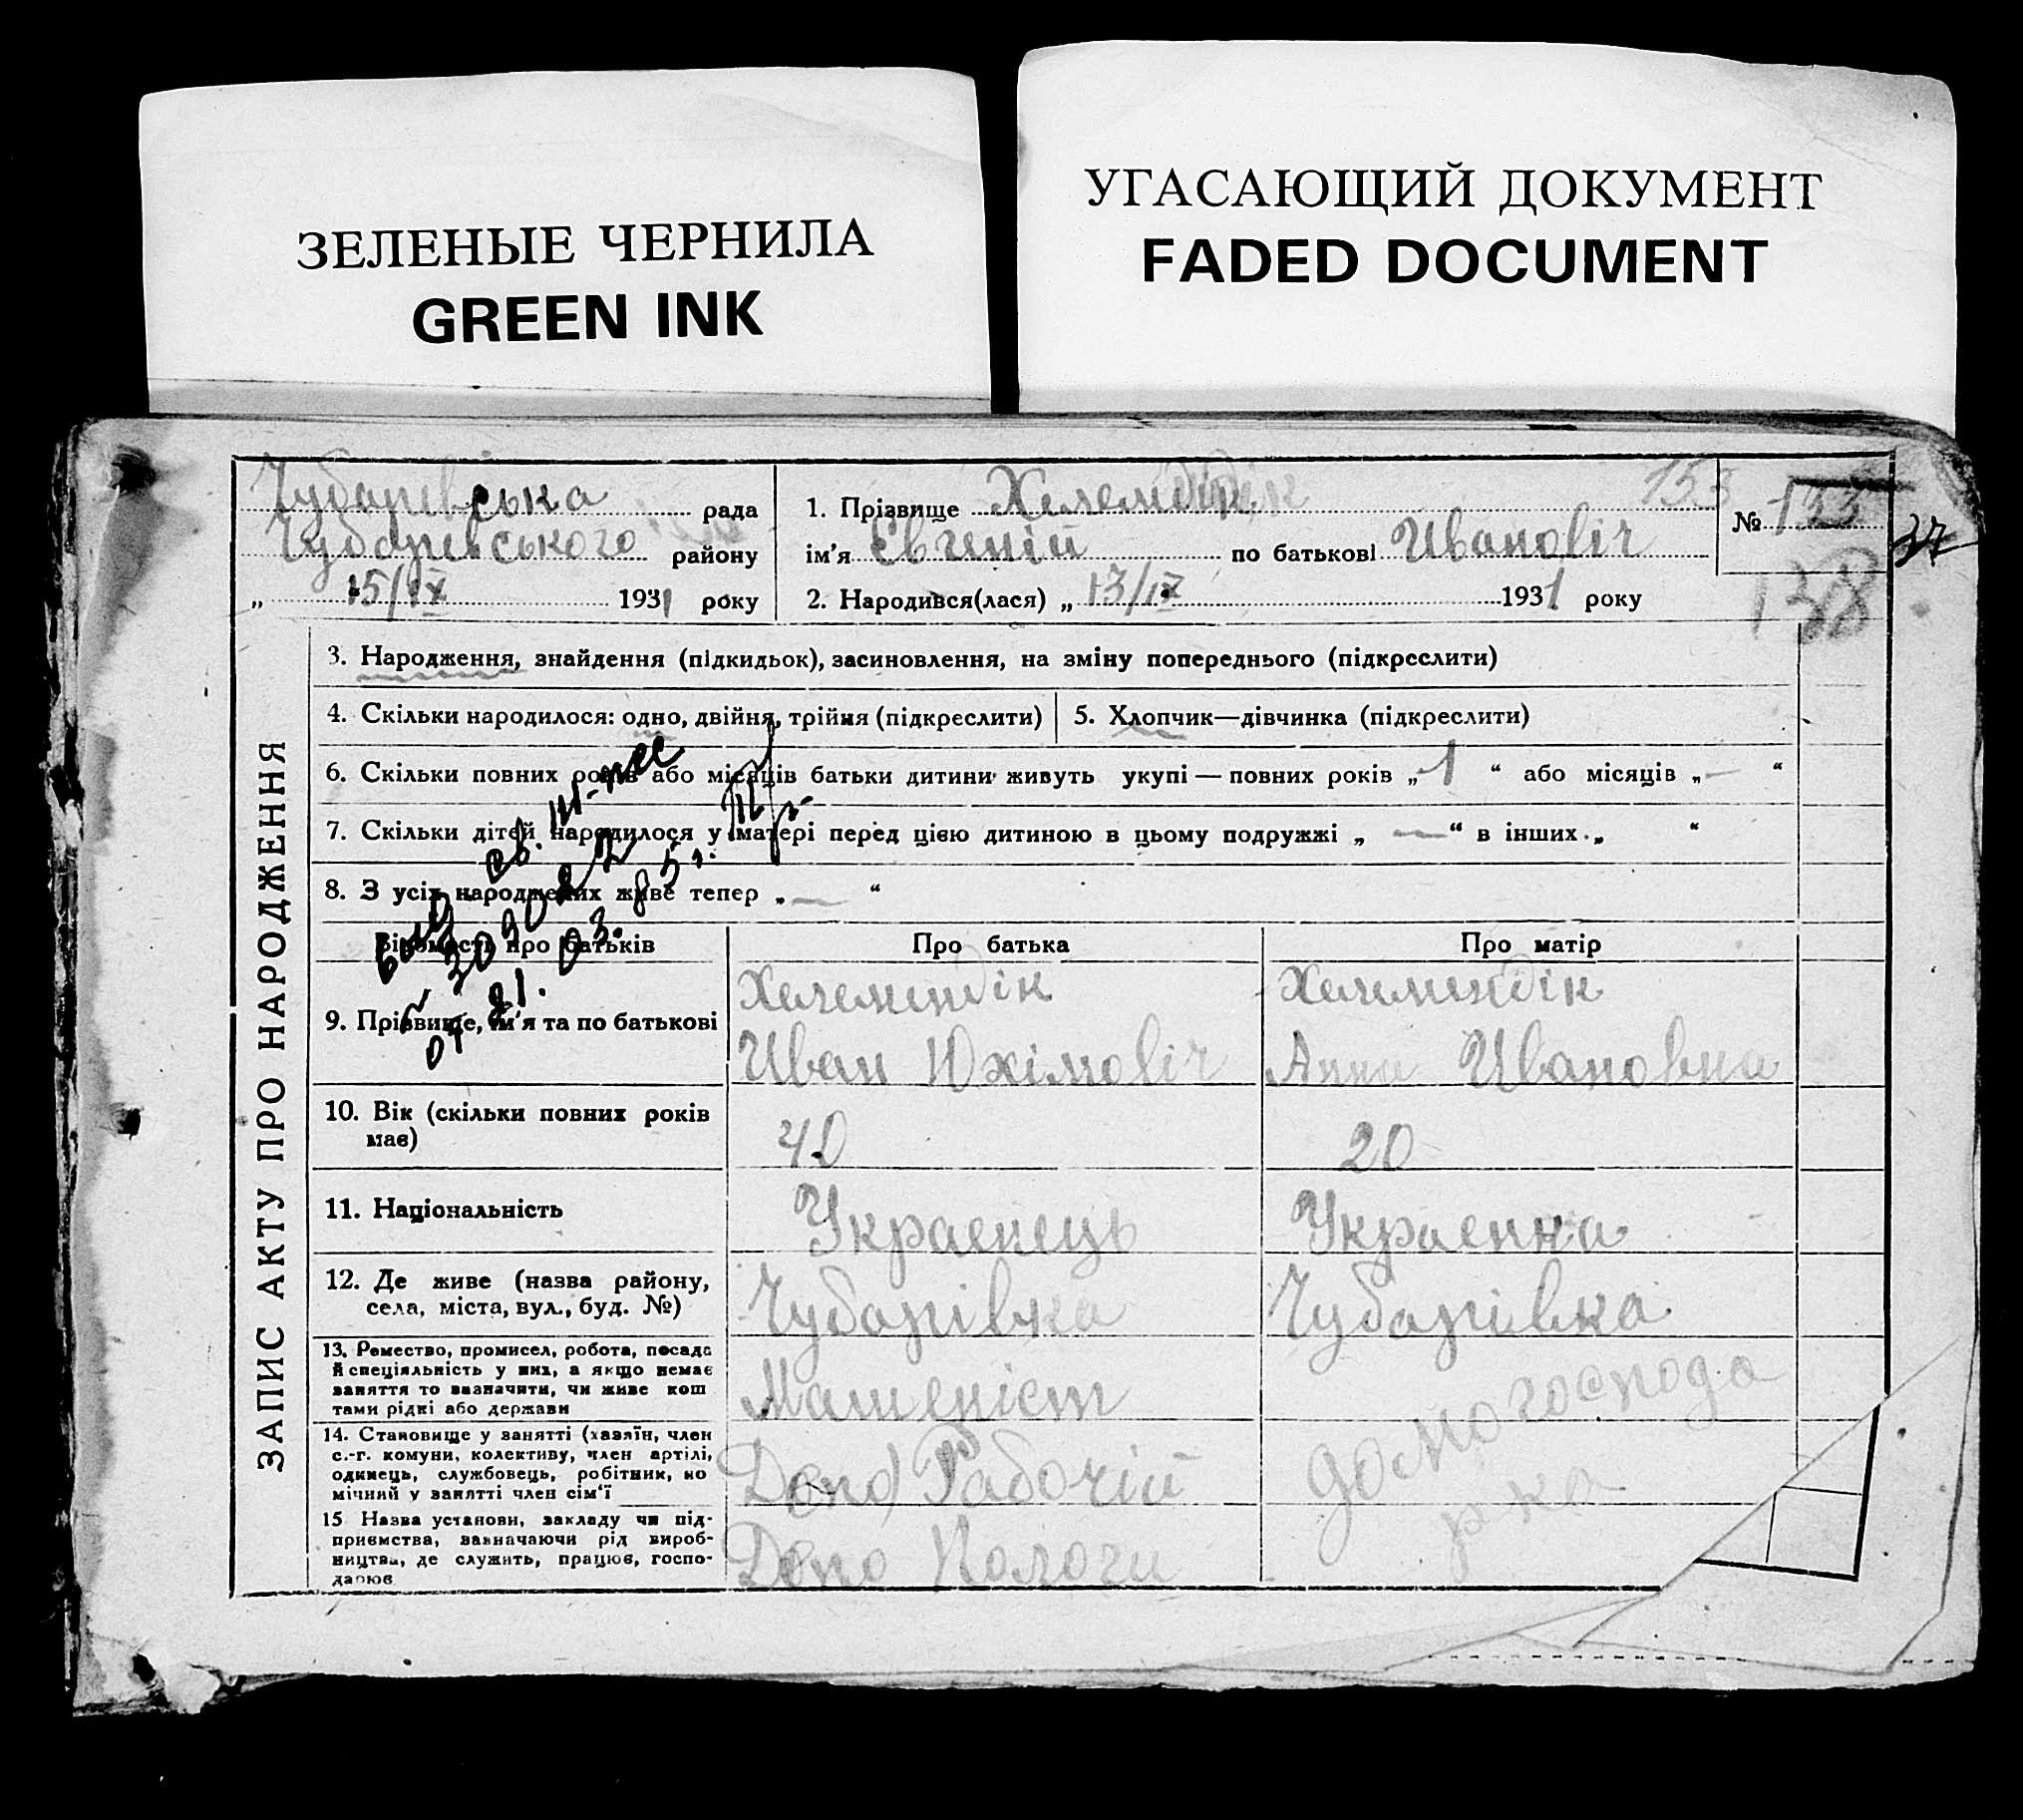 ЗЕЛЕНЫЕ ЧЕРНИЛА
GREEN INK
УГАСАЮЩИЙ ДОКУМЕНТ
FADED DOCUMENT
Чубарівська рада
Чубарівського району
„ 15/IX 1931 року
1. Прізвище Хелемендік 153
ім'я Євгеній по батькові Иванович
2. Народився(лася) „ 13/IX 1931 року
№ 133
37
138
ЗАПИС АКТУ ПРО НАРОДЖЕННЯ
3. Народження, знайдення (підкидьок), засиновлення, на зміну попереднього (підкреслити)
4. Скільки народилося: одно, двійня, трійня (підкреслити)
5. Хлопчик—дівчинка (підкреслити)
6. Скільки повних років або місяців батьки дитини живуть укупі — повних років „ 1 “ або місяців „ — “
7. Скільки дітей народилося у матері перед цією дитиною в цьому подружжі „ — “ в інших „ “
8. З усіх народжених живе тепер „ — “
выд. св. III-
от 21. 03. 85 г.
Відомость про батьків
Про батька
Про матір
9. Прізвище, ім'я та по батькові
Хелемендік
Иван Юхімовіч
Хелемендік
Анна Ивановна
10. Вік (скільки повних років має)
40
20
11. Національність
Украенець
Украенка
12. Де живе (назва району,
села, міста, вул., буд. №)
Чубарівка
Чубарівка
13. Ремество, промисел, робота, посада
й спеціяльність у них, а якщо немає
заняття то зазначити, чи живе кош
тами рідні або держави
Машеніст
домогоспода
рка
14. Становище у занятті (хазяїн, член
с.-г. комуни, колективу, член артілі,
одинець, службовець, робітник, по
мічний у занятті член сім'ї
Депо Рабочій
15 Назва установи, закладу чи під-
приємства, зазначаючи рід вироб-
ництва, де служить, працює, госпо-
дарює
Депо Пологи